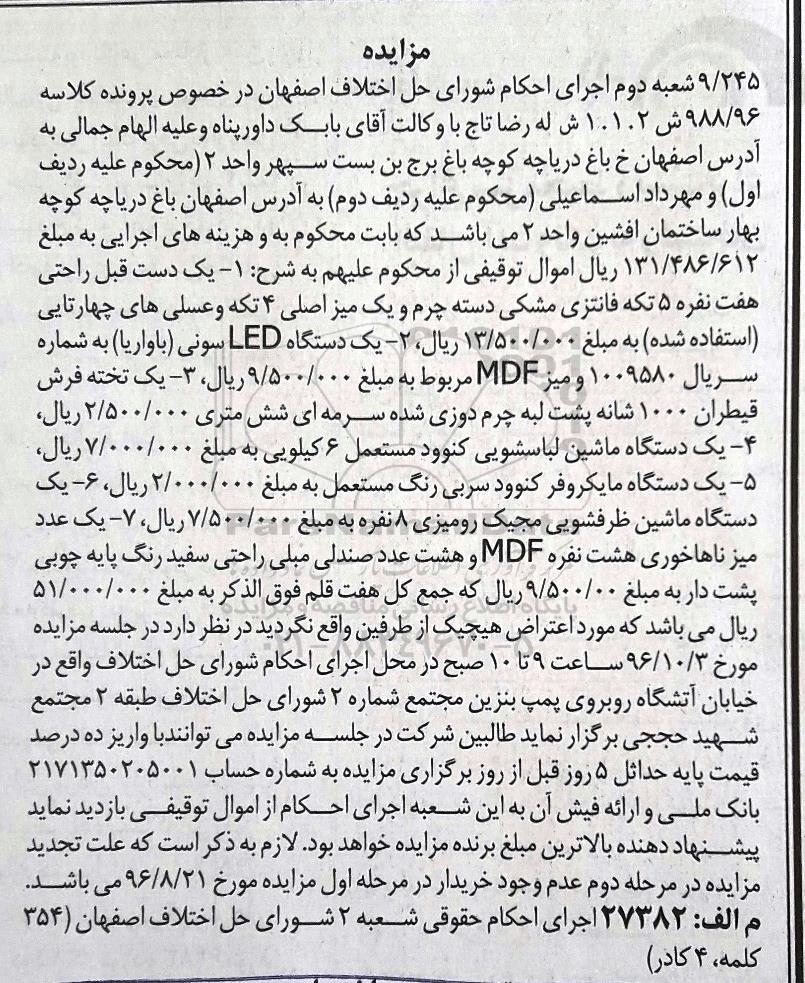 مزایده
۹/۲۴۵ شعبه دوم اجرای احکام شورای حل اختلاف اصفهان در خصوص پرونده کلاسه
۹۸۸/۹۶ ش ۱.۱.۲ ش له رضا تاج با وکالت آقای بابک داورپناه وعلیه الهام جمالی به
آدرس اصفهان خ باغ دریاچه کوچه باغ برج بن بست سپهر واحد ۲ (محکوم علیه ردیف
اول) و مهرداد اسماعیلی (محکوم علیه ردیف دوم) به آدرس اصفهان باغ دریاچه کوچه
بهار ساختمان افشین واحد ۲ می باشد که بابت محکوم به و هزینه های اجرایی به مبلغ
۱۳۱/۴۸۶/۶۱۲ ریال اموال توقیفی از محکوم علیهم به شرح: ۱- یک دست قبل راحتی
هفت نفره ۵ تکه فانتزی مشکی دسته چرم و یک میز اصلی ۴ تکه وعسلی های چهارتایی
(استفاده شده) به مبلغ ۱۳/۵۰۰/۰۰۰ ریال، ۲- یک دستگاه LED سونی (باواریا) به شماره
سریال ۱۰۰۹۵۸۰ و میز MDF مربوط به مبلغ ۹/۵۰۰/۰۰۰ ریال، ۳- یک تخته فرش
قیطران ۱۰۰۰ شانه پشت لبه چرم دوزی شده سرمه ای شش متری ۲/۵۰۰/۰۰۰ ریال،
۴- یک دستگاه ماشین لباسشویی کنوود مستعمل ۶ کیلویی به مبلغ ۷/۰۰۰/۰۰۰ ریال،
۵- یک دستگاه مایکروفر کنوود سربی رنگ مستعمل به مبلغ ۲/۰۰۰/۰۰۰ ریال، ۶- یک
دستگاه ماشین ظرفشویی مجیک رومیزی ۸ نفره به مبلغ ۷/۵۰۰/۰۰۰ ریال، ۷- یک عدد
میز ناهاخوری هشت نفره MDF و هشت عدد صندلی مبلی راحتی سفید رنگ پایه چوبی
پشت دار به مبلغ ۹/۵۰۰/۰۰ ریال که جمع کل هفت قلم فوق الذکر به مبلغ ۵۱/۰۰۰/۰۰۰
ریال می باشد که مورد اعتراض هیچیک از طرفین واقع نگردید در نظر دارد در جلسه مزایده
مورخ ۹۶/۱۰/۳ ساعت ۹ تا ۱۰ صبح در محل اجرای احکام شورای حل اختلاف واقع در
خیابان آتشگاه روبروی پمپ بنزین مجتمع شماره ۲ شورای حل اختلاف طبقه ۲ مجتمع
شهید حججی برگزار نماید طالبین شرکت در جلسه مزایده می توانندبا واریز ده درصد
قیمت پایه حداثل ۵ روز قبل از روز برگزاری مزایده به شماره حساب ۲۱۷۱۳۵۰۲۰۵۰۰۱
بانک ملی و ارائه فیش آن به این شعبه اجرای احکام از اموال توقیفی بازدید نماید
پیشنهاد دهنده بالاترین مبلغ برنده مزایده خواهد بود. لازم به ذکر است که علت تجدید
مزایده در مرحله دوم عدم وجود خریدار در مرحله اول مزایده مورخ ۹۶/۸/۲۱ می باشد.
م الف: ۲۷۳۸۲ اجرای احکام حقوقی شعبه ۲ شورای حل اختلاف اصفهان (۳۵۴
کلمه، ۴ کادر)